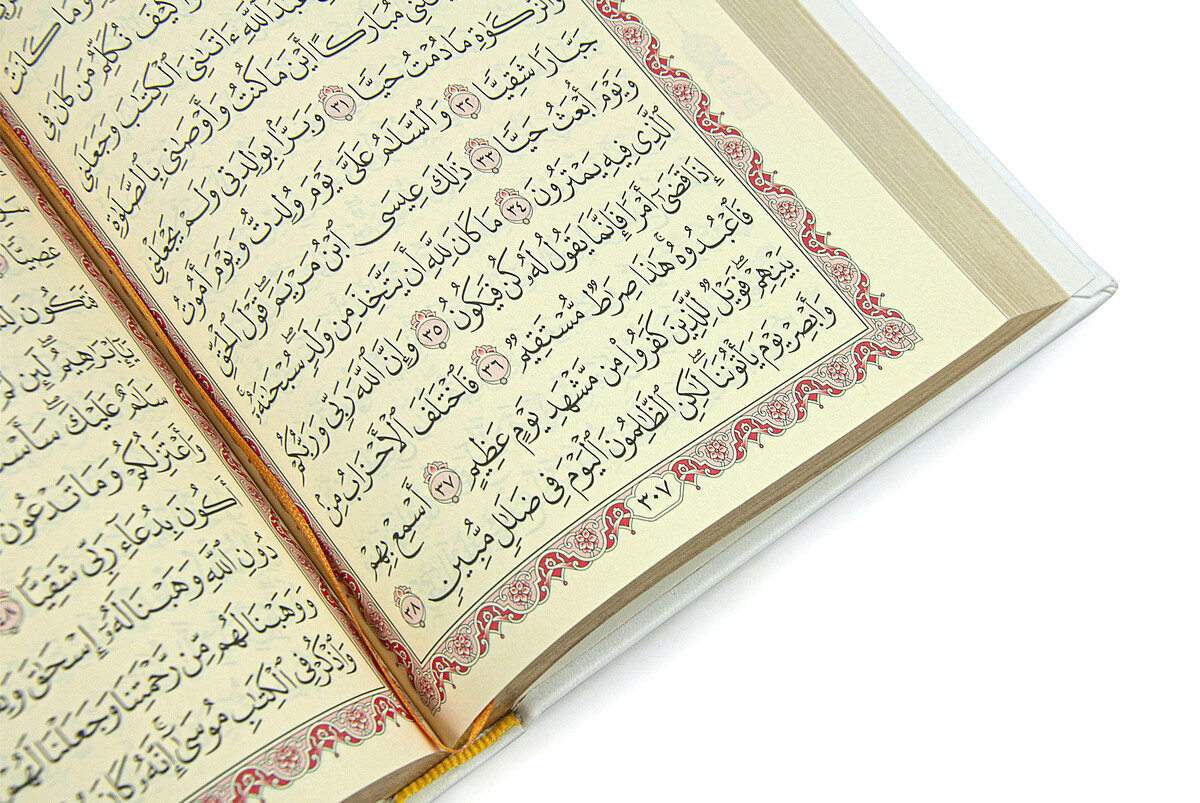 وَمَا كَانَتْ
كَيْفَ نُكَلِّمُ مَن كَانَ فِى
عَبْدُ ٱللَّهِ ءَاتَىٰنِىَ ٱلْكِتَٰبَ وَجَعَلَنِى
مُبَارَكًا أَيْنَ مَا كُنتُ وَأَوْصَٰنِى بِٱلصَّلَوٰةِ
وَٱلزَّكَوٰةِ مَا دُمْتُ حَيًّا ٣١ وَبَرًّۢا بِوَٰلِدَتِى وَلَمْ يَجْعَلْنِى
جَبَّارًا شَقِيًّا ٣٢ وَٱلسَّلَٰمُ عَلَىَّ يَوْمَ وُلِدتُّ وَيَوْمَ أَمُوتُ
وَيَوْمَ أُبْعَثُ حَيًّا ٣٣ ذَٰلِكَ عِيسَى ٱبْنُ مَرْيَمَ ۚ قَوْلَ ٱلْحَقِّ
ٱلَّذِى فِيهِ يَمْتَرُونَ ٣٤ مَا كَانَ لِلَّهِ أَن يَتَّخِذَ مِن وَلَدٍ ۖ سُبْحَٰنَهُۥٓ ۚ
إِذَا قَضَىٰٓ أَمْرًا فَإِنَّمَا يَقُولُ لَهُۥ كُن فَيَكُونُ ٣٥ وَإِنَّ ٱللَّهَ رَبِّى وَرَبُّكُمْ
فَٱعْبُدُوهُ ۚ هَٰذَا صِرَٰطٌ مُّسْتَقِيمٌ ٣٦ فَٱخْتَلَفَ ٱلْأَحْزَابُ مِنۢ
بَيْنِهِمْ ۖ فَوَيْلٌ لِّلَّذِينَ كَفَرُوا۟ مِن مَّشْهَدِ يَوْمٍ عَظِيمٍ ٣٧ أَسْمِعْ بِهِمْ
وَأَبْصِرْ يَوْمَ يَأْتُونَنَا ۖ لَٰكِنِ ٱلظَّٰلِمُونَ ٱلْيَوْمَ فِى ضَلَٰلٍ مُّبِينٍ ٣٨
٣٠٧
عَصِيًّا
فَتَكُونَ
يَٰٓإِبْرَٰهِيمُ ۖ لَئِن لَّمْ
سَلَٰمٌ عَلَيْكَ ۖ
وَأَعْتَزِلُكُمْ وَمَا تَدْعُونَ
أَكُونَ بِدُعَآءِ رَبِّى شَقِيًّا ٤٨
دُونِ ٱللَّهِ وَهَبْنَا لَهُۥٓ إِسْحَٰقَ
وَوَهَبْنَا لَهُم مِّن رَّحْمَتِنَا وَجَعَلْنَا لَهُمْ
وَٱذْكُرْ فِى ٱلْكِتَٰبِ مُوسَىٰٓ ۚ إِنَّهُۥ كَانَ